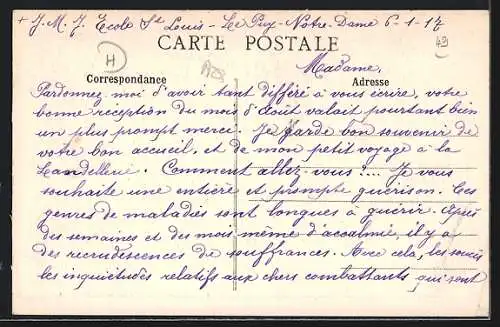 + J. M. J. Ecole St Louis - Le Puy-Notre-Dame 6-1-17
CARTE POSTALE
H
49
Madame,
Correspondance
Adresse
Pardonnez-moi d'avoir tant différé à vous écrire, votre
bonne réception du mois d'Août valait pourtant bien
un plus prompt merci. Je garde bon souvenir de
votre bon accueil, et de mon petit voyage à la
Comment allez-vous ?... Je vous
souhaite une entière et prompte guérison. Ces
genres de maladies sont longues à guérir. Après
des semaines et des mois même d'accalmie, il y a
des recrudescences de souffrances. Avec cela, les soucis
les inquiétudes relatifs aux chers combattants qui sont